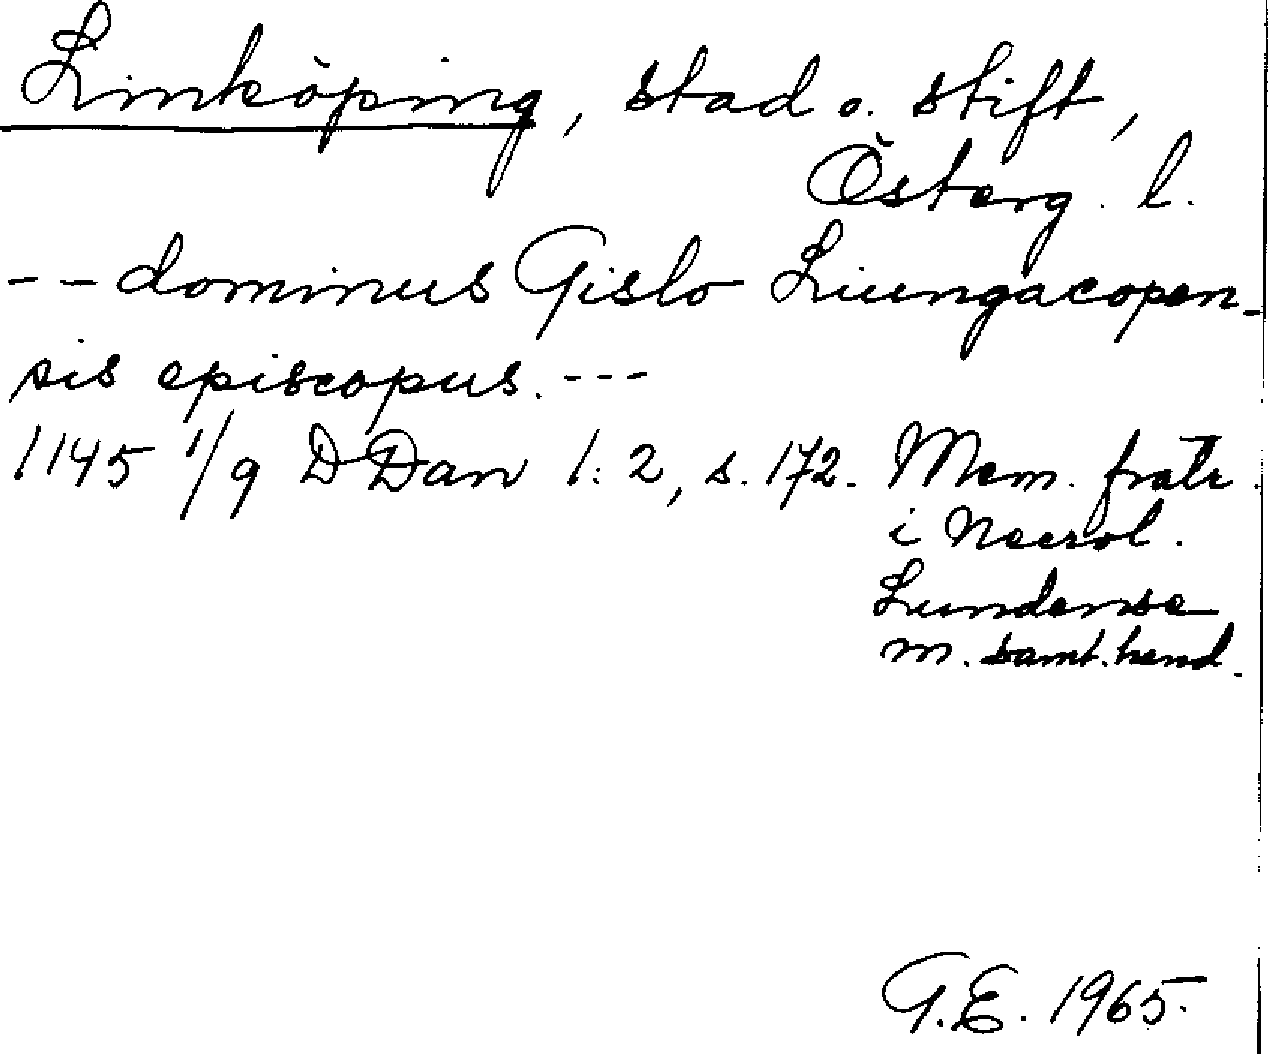 Linköping, stad o. stift,
Österg. l.
-- dominus Gislo Liungacopen-
sis episcopus. ---
1145 1/9 DDan 1:2, s. 172. Mem. fratr.
i Necrol.
Lundense
m. samt. hand.
G.E. 1965.